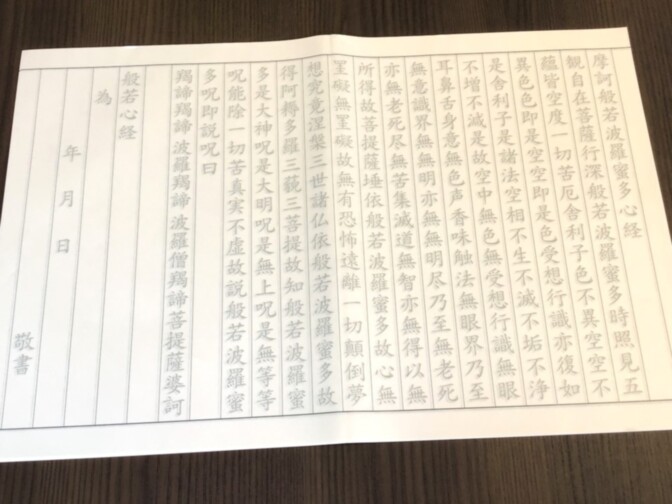 摩訶般若波羅蜜多心経
観自在菩薩行深般若波羅蜜多時照見五
蘊皆空度一切苦厄舎利子色不異空空不
異色色即是空空即是色受想行識亦復如
是舎利子是諸法空相不生不滅不垢不浄
不増不減是故空中無色無受想行識無眼
耳鼻舌身意無色声香味触法無眼界乃至
無意識界無無明亦無無明尽乃至無老死
亦無老死尽無苦集滅道無智亦無得以無
所得故菩提薩埵依般若波羅蜜多故心無
罣礙無罣礙故無有恐怖遠離一切顛倒夢
想究竟涅槃三世諸仏依般若波羅蜜多故
得阿耨多羅三藐三菩提故知般若波羅蜜
多是大神呪是大明呪是無上呪是無等等
呪能除一切苦真実不虚故説般若波羅蜜
多呪即説呪曰
羯諦羯諦波羅羯諦波羅僧羯諦菩提薩婆訶
般若心経
為
年月日
敬書